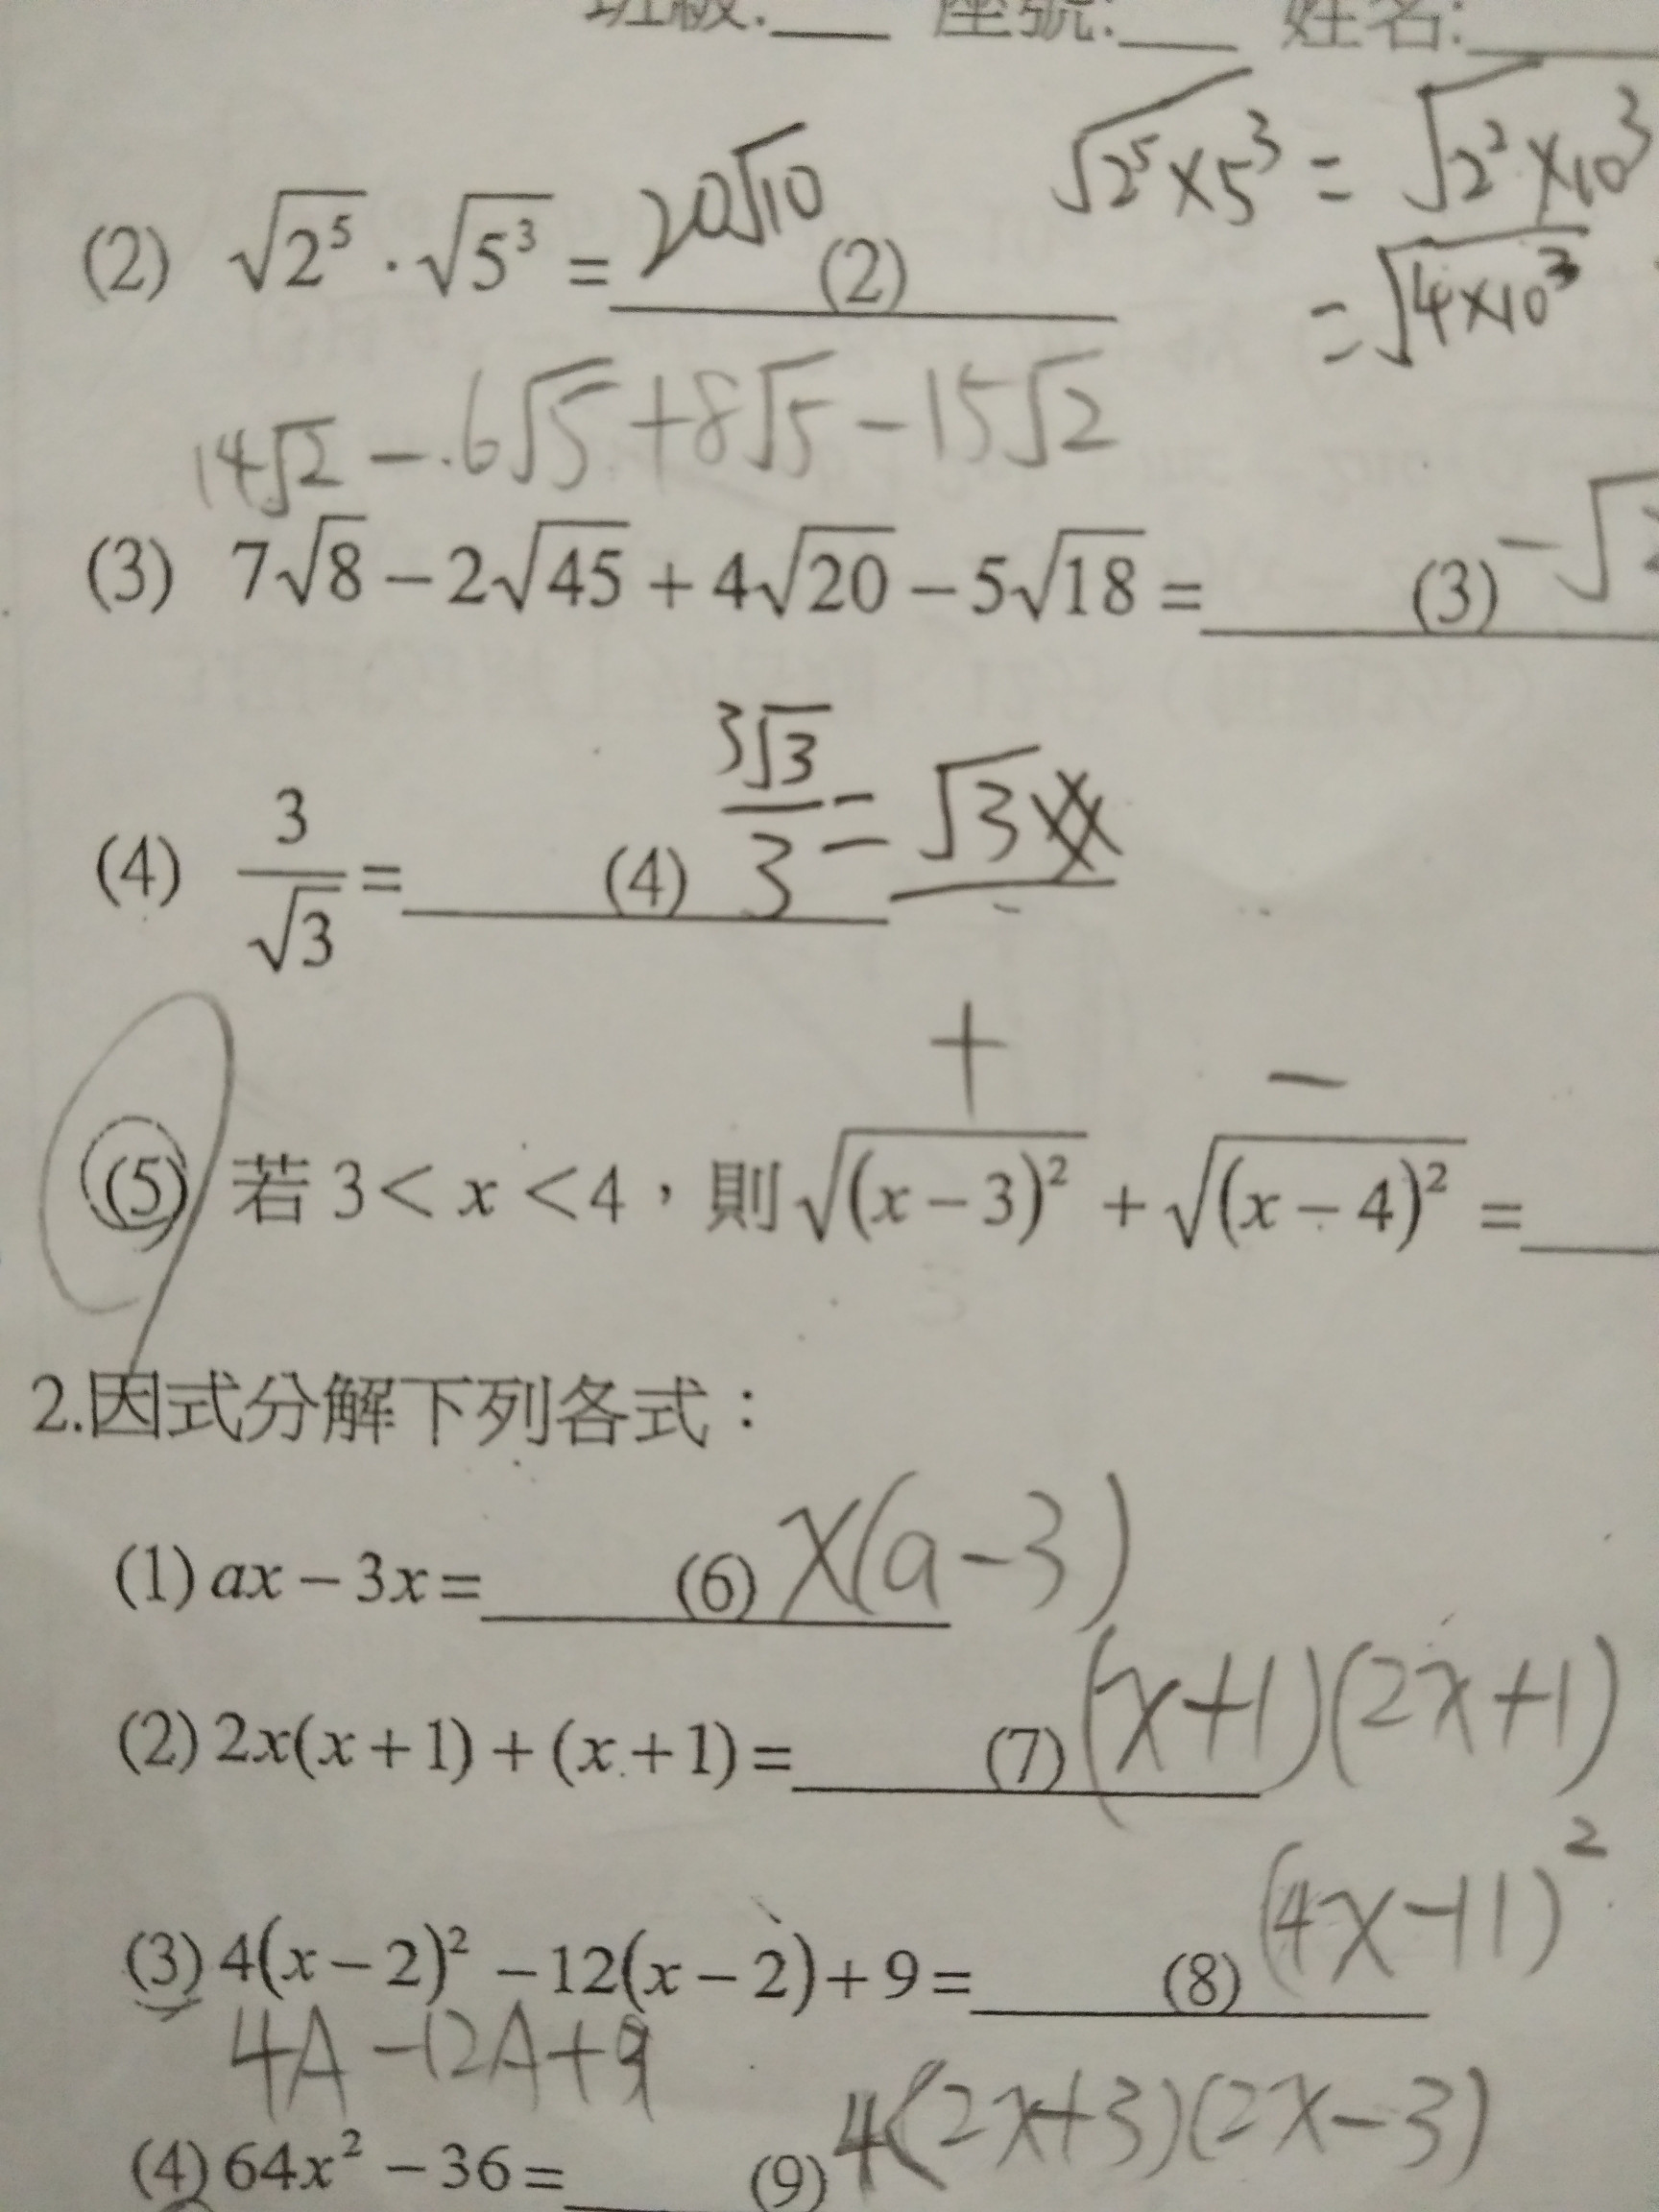 班級:___ 座號:___ 姓名:
√(2⁵×5³) = √(2²×10³)
= √(4×10³)
(2) √2⁵ · √5³ = 20√10 (2)
14√2 − 6√5 + 8√5 − 15√2
(3) 7√8 − 2√45 + 4√20 − 5√18 = (3) −√
(4) 3/√3 = (4) 3√3/3 = √3
+ −
(5) 若 3 < x < 4，則 √(x−3)² + √(x−4)² =
2.因式分解下列各式：
(1) ax − 3x = (6) x(a−3)
(2) 2x(x+1) + (x+1) = (7) (x+1)(2x+1)
(3) 4(x−2)² − 12(x−2) + 9 = (8) (4x−11)²
4A − 12A + 9
(4) 64x² − 36 = (9) 4(2x+3)(2x−3)